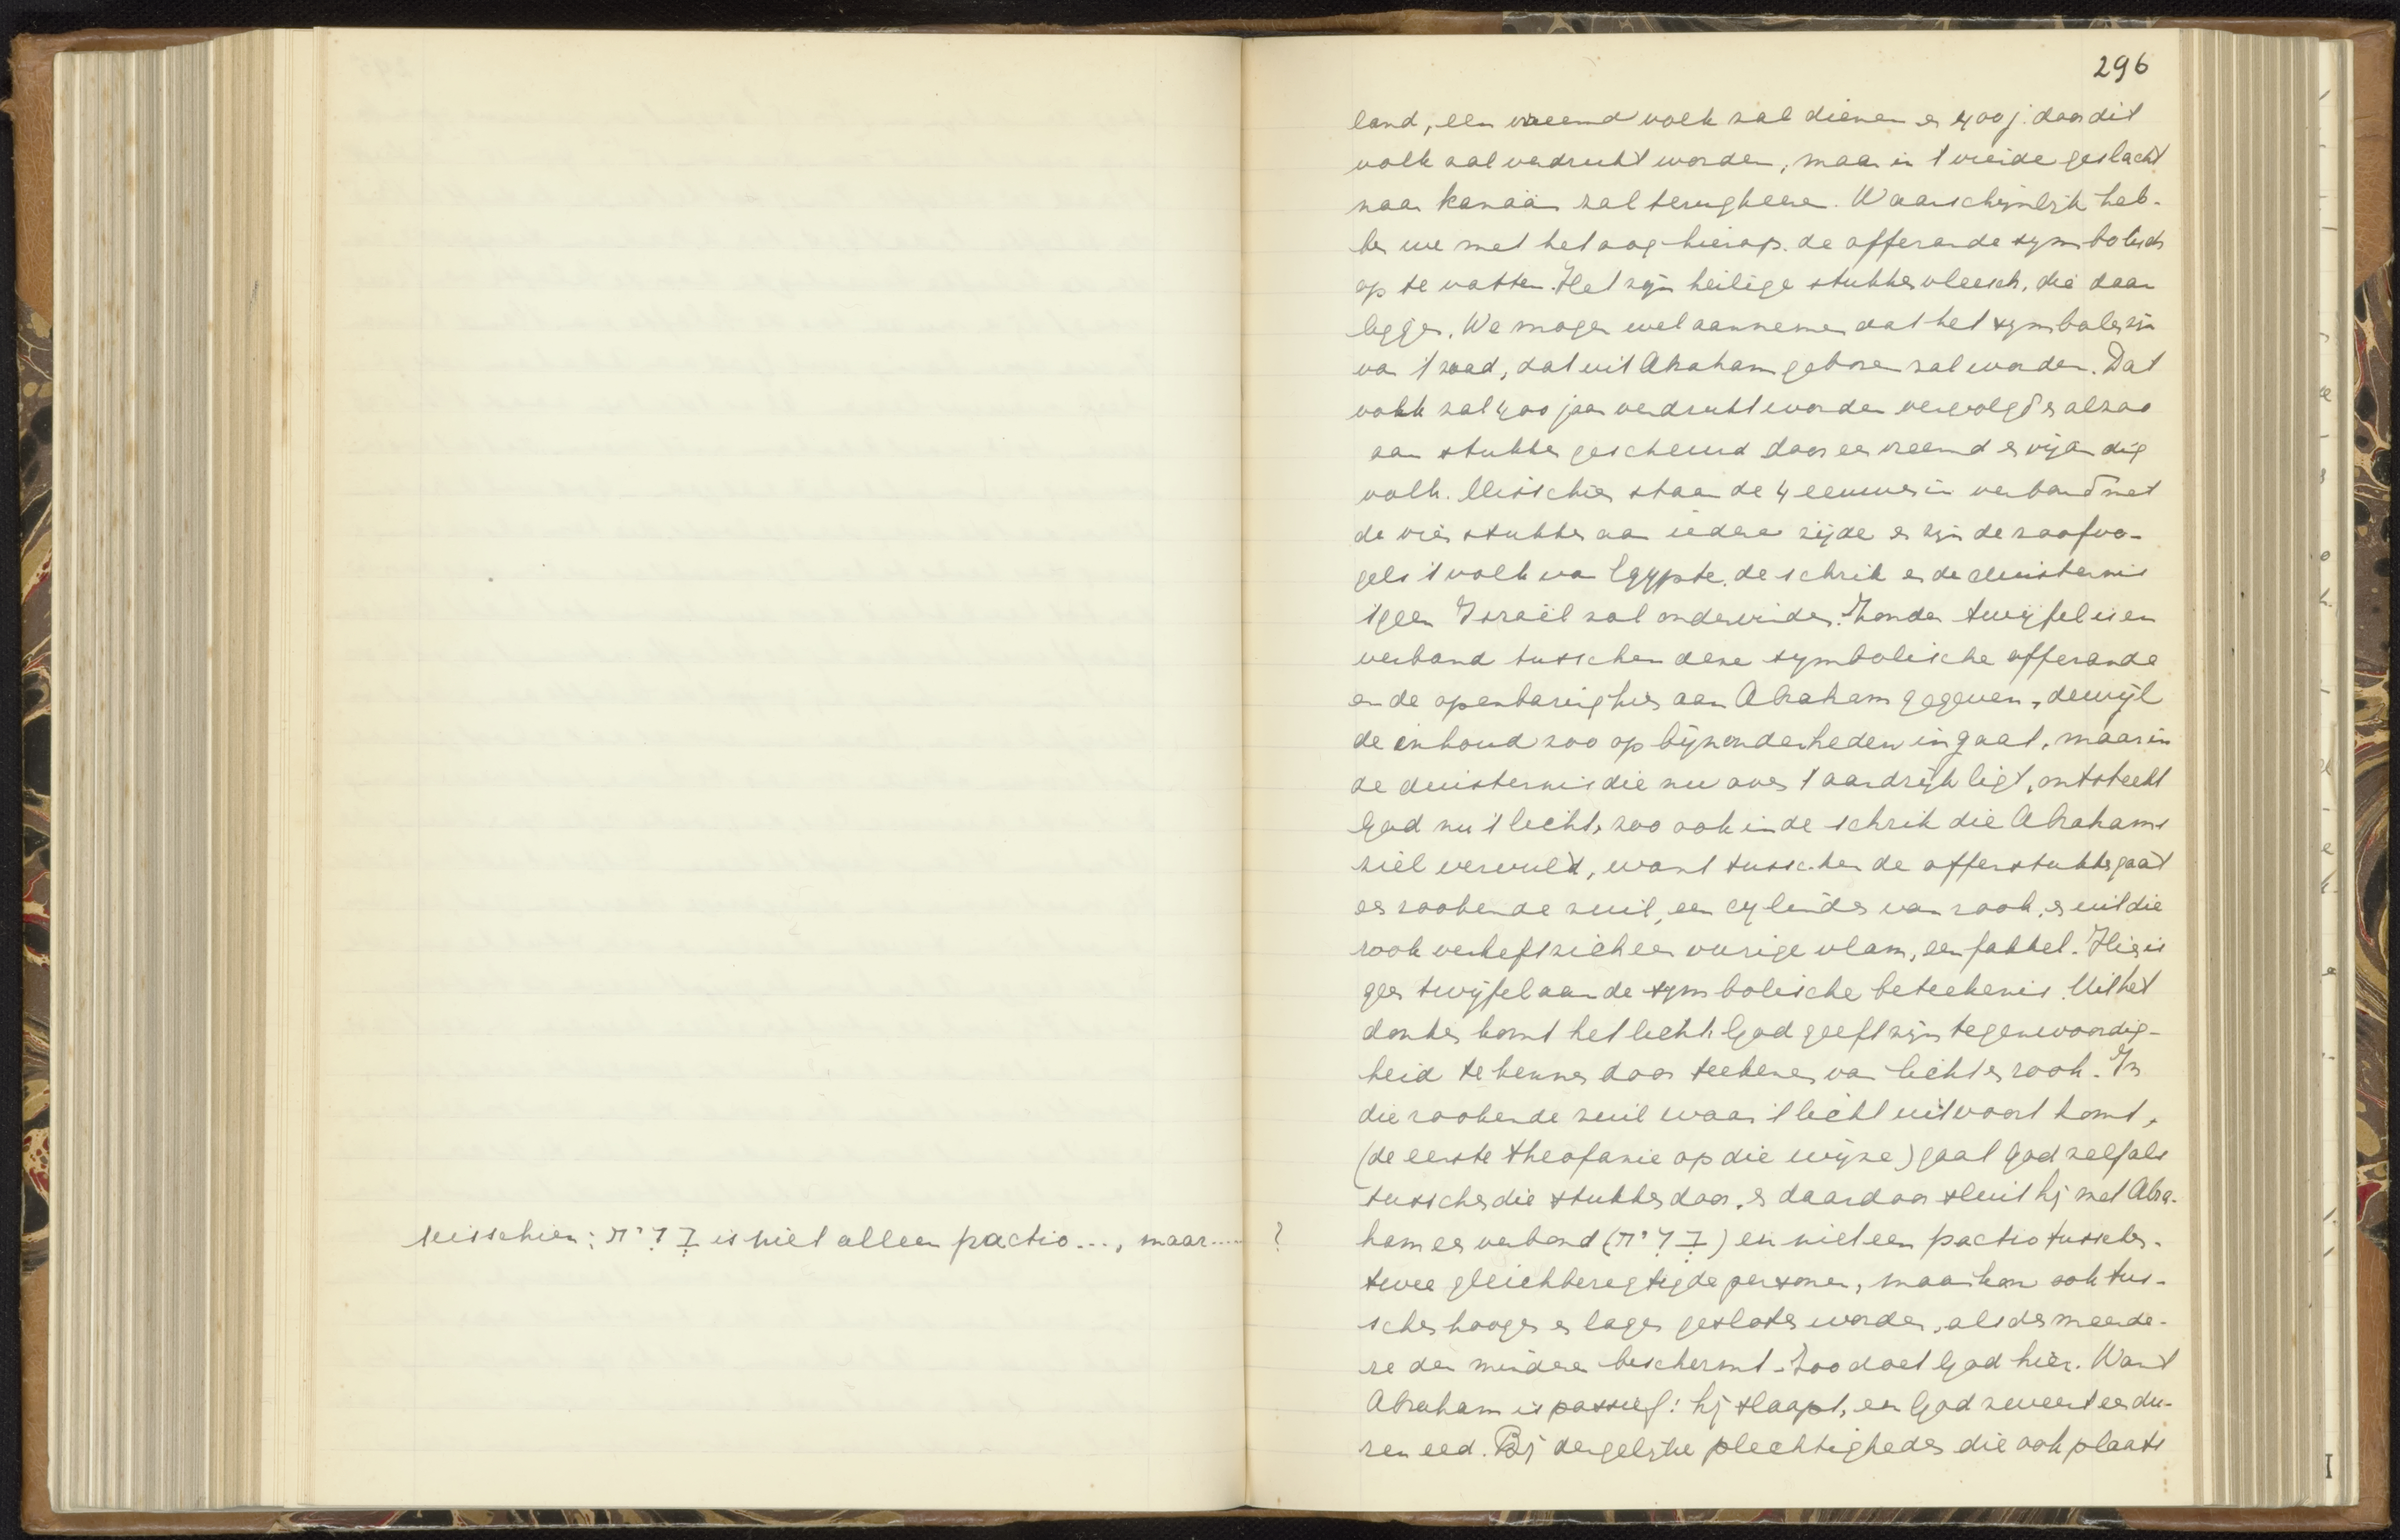 misschien: בְּרִית is niet alleen pactio ..., maar .....
296
land, een vreemd volk zal dienen en 400 j. door dit
volk zal verdrukt worden, maar in 't vierde geslacht
naar Kanaän zal terugkeeren. Waarschijnlijk heb-
ben we met het oog hierop de offerande symbolisch
op te vatten. Het zijn heilige stukken vleesch, die daar
liggen. We mogen wel aannemen dat het symbolen zijn
van 't zaad, dat uit Abraham geboren zal worden. Dat
volk zal 400 jaar verdrukt worden vervolgd en alzoo
aan stukken gescheurd door een vreemd en vijandig
volk. Misschien staan de 4 eeuwen in verband met
de vier stukken aan iedere zijde en zijn de roofvo-
gels 't volk van Egypte, de schrik en de duisternis
'tgeen Israël zal ondervinden. Zonder twijfel is er
verband tusschen deze symbolische offerande
en de openbaring hier aan Abraham gegeven, dewijl
de inhoud zoo op bijzonderheden ingaat, maar in
de duisternis die nu over 't aardrijk ligt, ontsteekt
God nu 't licht, zoo ook in de schrik die Abrahams
ziel vervult, want tusschen de offerstukken gaat
een rookende zuil, een cylinder van rook, en uit die
rook verheft zich een vurige vlam, een fakkel. Hier is
geen twijfel aan de symbolische beteekenis. Uit het
donker komt het licht. God geeft zijn tegenwoordig-
heid te kennen door teekenen van licht en rook. In
die rookende zuil waar 't licht uit voort komt,
(de eerste theofanie op die wijze) gaat God zelf als
tusschen die stukken door, en daardoor sluit hij met Abra-
? ham een verbond (בְּרִית) en niet een pactio tusschen
twee gleichberegtigde personen, maar kan ook tus-
schen hooger en lager gesloten worden, als de meerde-
re den mindere beschermt. Zoo doet God hier. Want
Abraham is passief: hij slaapt, en God zweert een du-
ren eed. Bij dergelijke plechtigheden die ook plaats